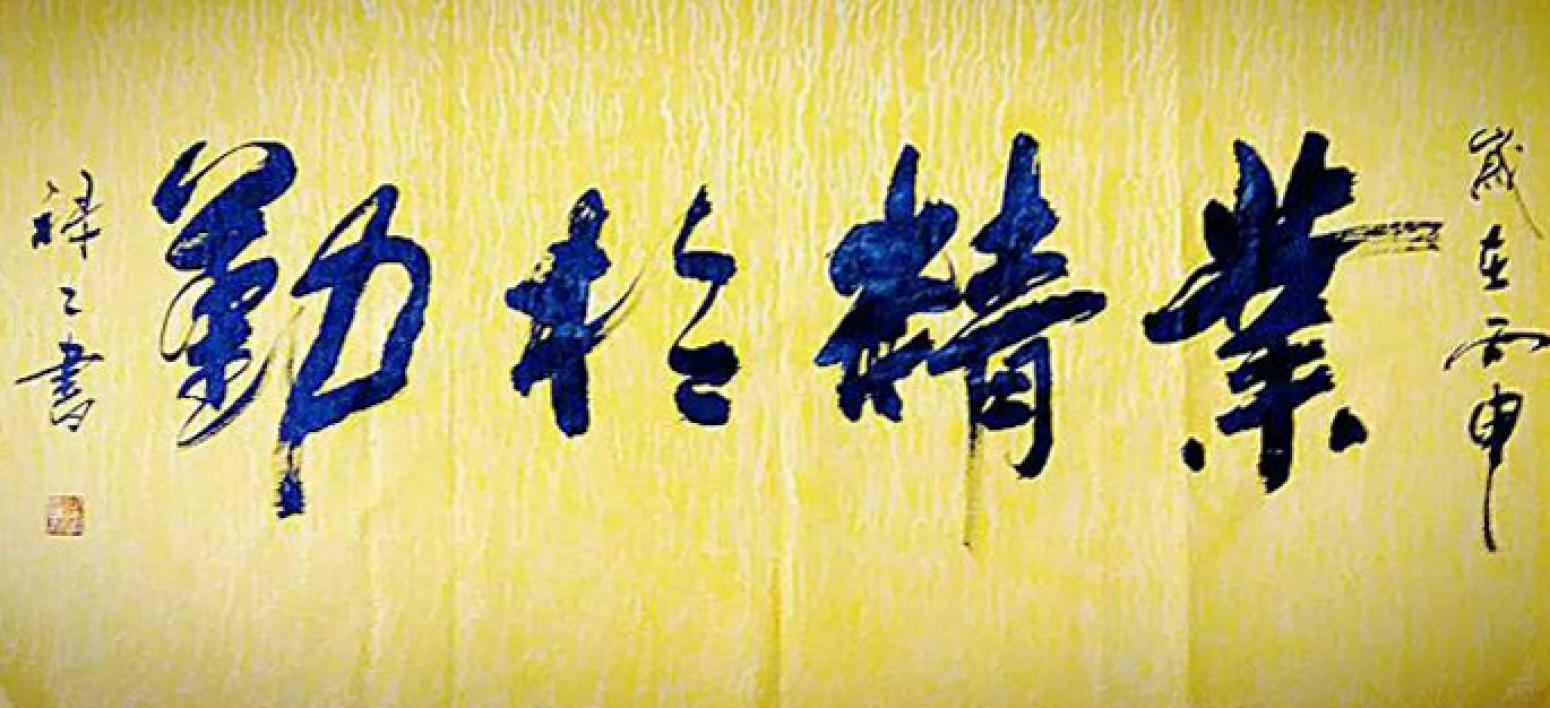 歲在丙申
業精於勤
祥之書